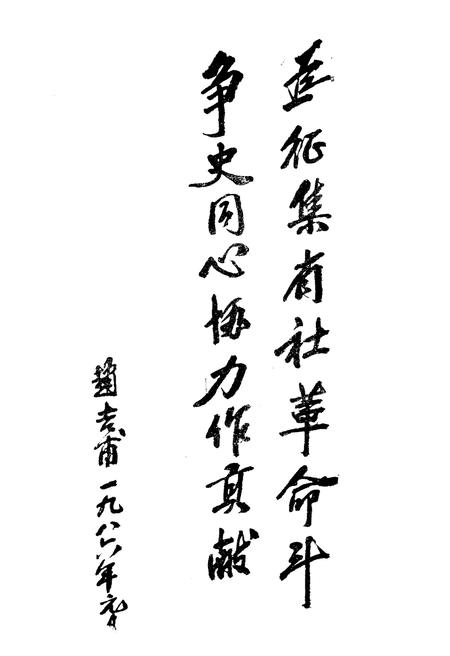 征集省社革命斗
争史同心协力作贡献
趙志甫一九八六年